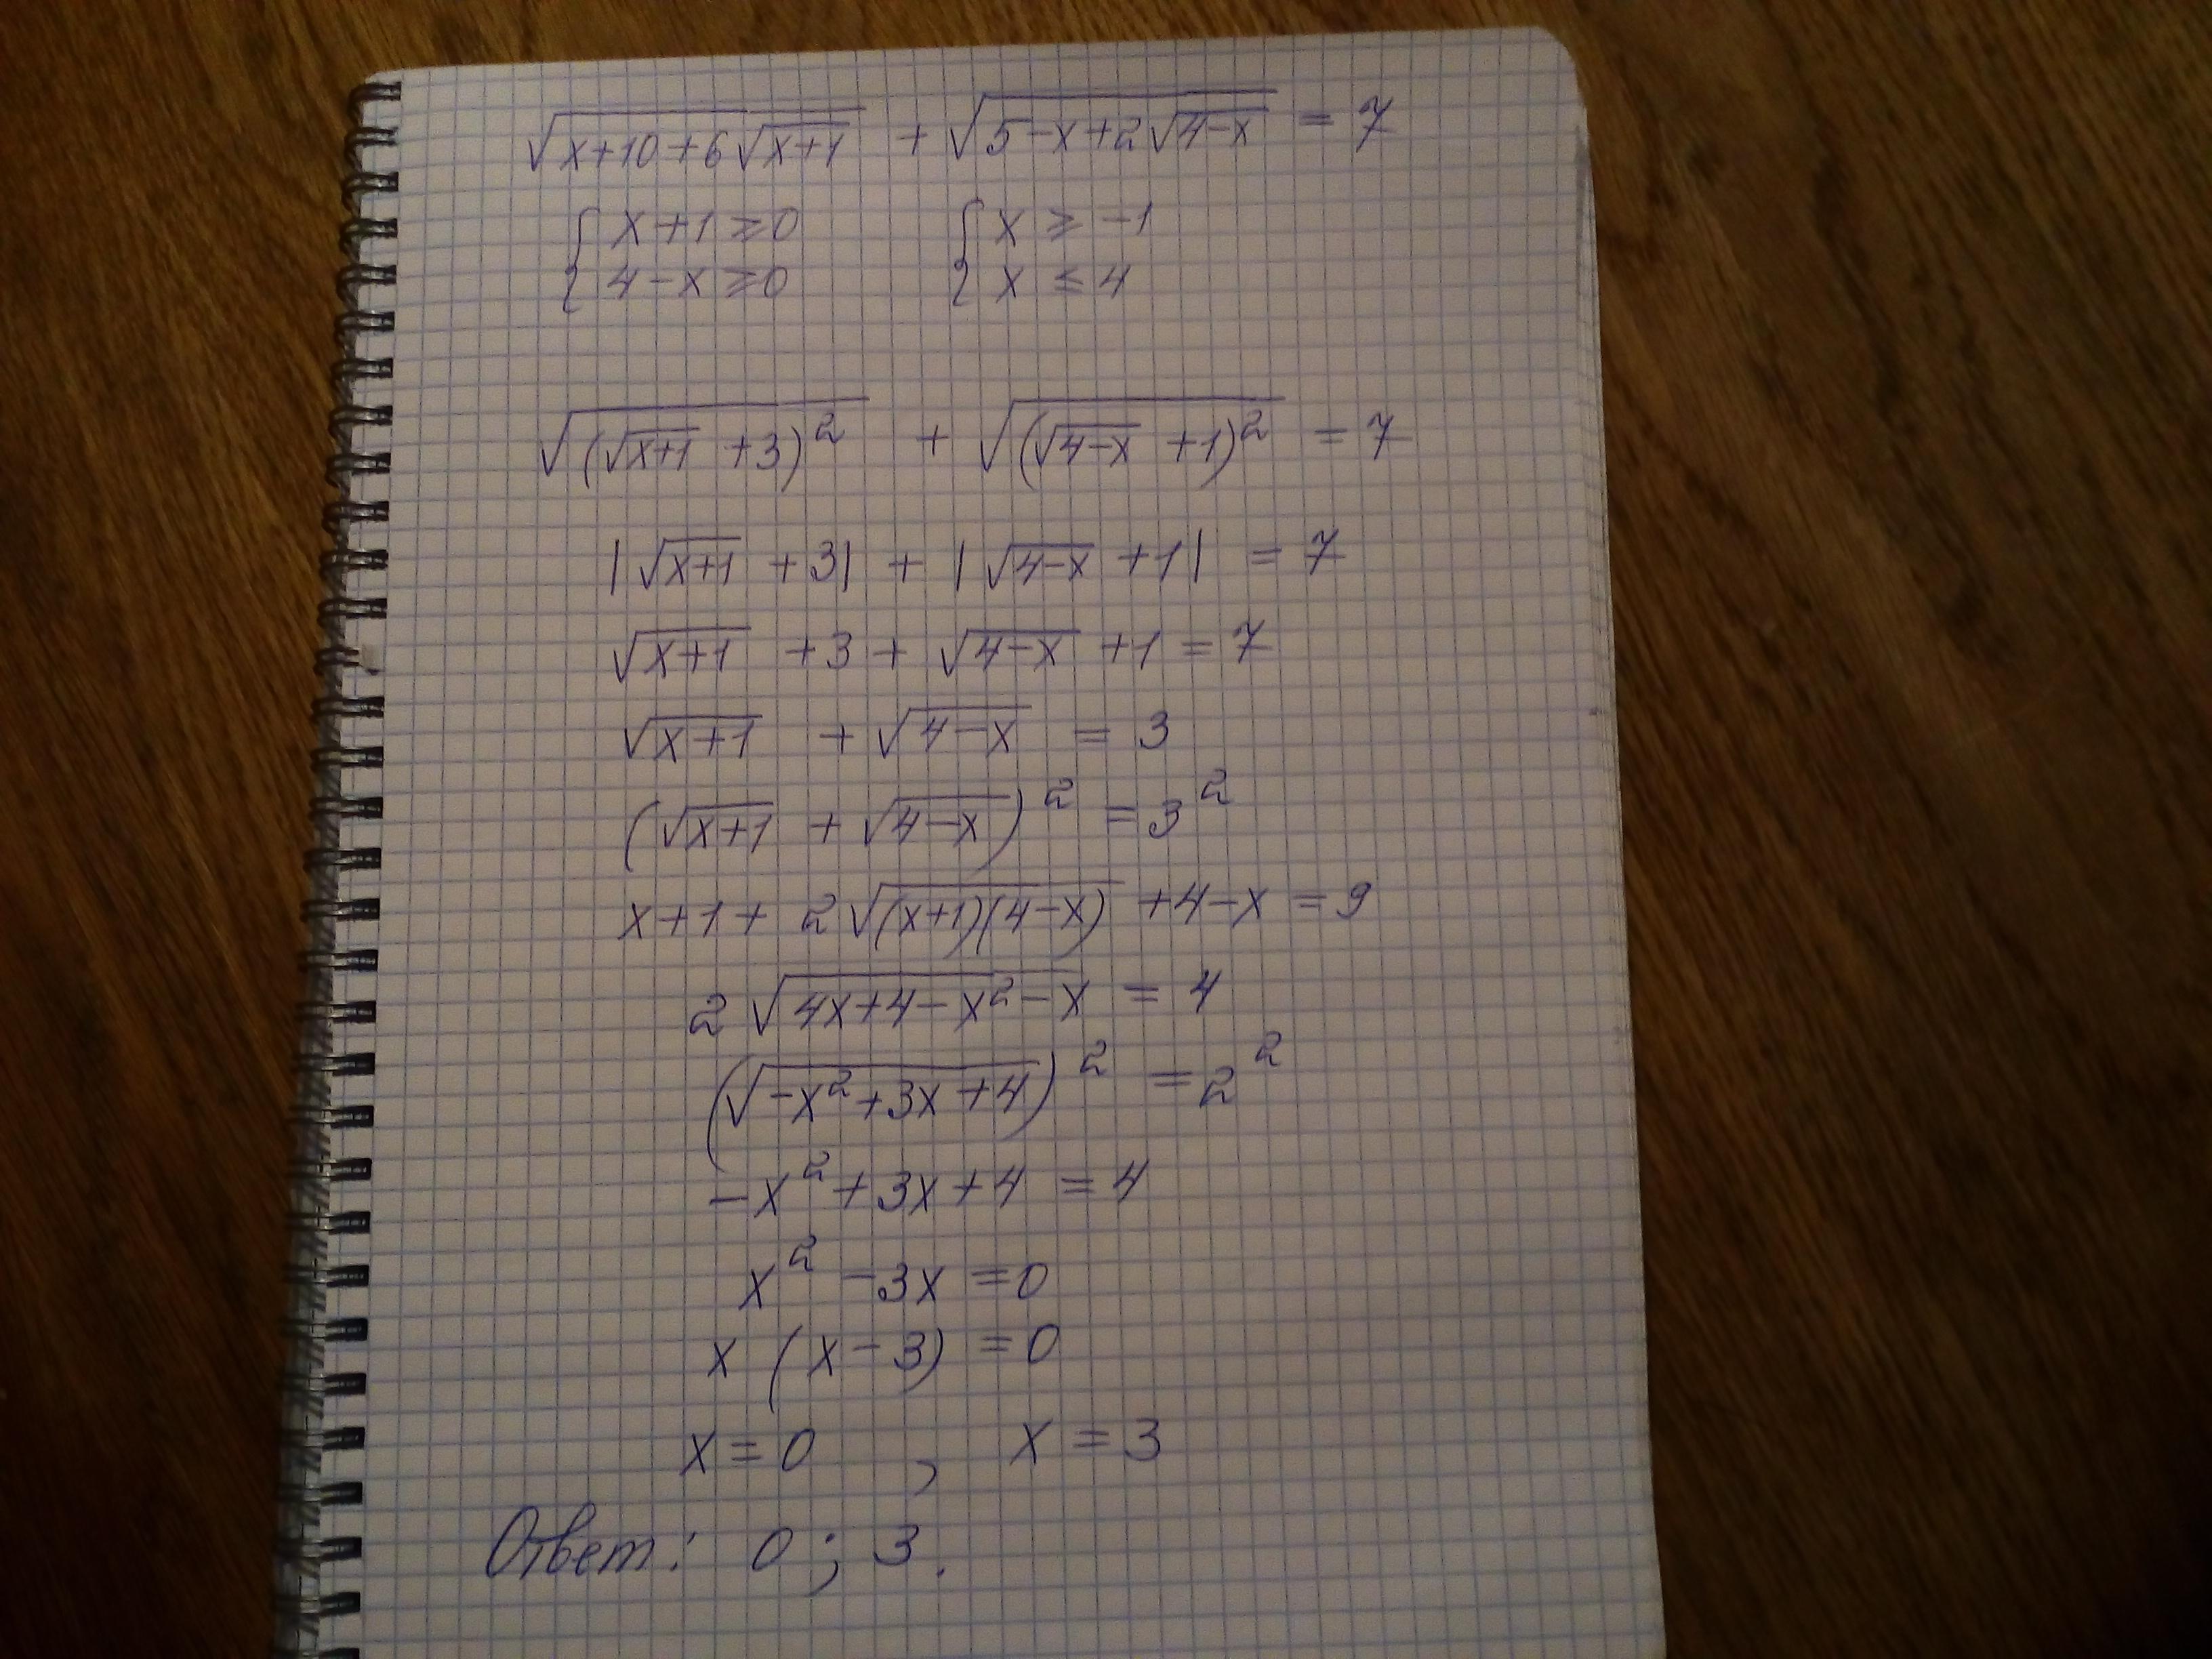 √(x+10+6√(x+1)) + √(5-x+2√(4-x)) = 7
{ x+1 ≥ 0 { x ≥ -1
{ 4-x ≥ 0 { x ≤ 4
√((√(x+1) +3)²) + √((√(4-x) +1)²) = 7
|√(x+1) +3| + |√(4-x) +1| = 7
√(x+1) +3 + √(4-x) +1 = 7
√(x+1) + √(4-x) = 3
(√(x+1) + √(4-x))² = 3²
x+1+ 2√((x+1)(4-x)) +4-x = 9
2√(4x+4-x²-x) = 4
(√(-x²+3x+4))² = 2²
-x²+3x+4 = 4
x² -3x = 0
x (x-3) = 0
x = 0 , x = 3
Ответ: 0 ; 3.